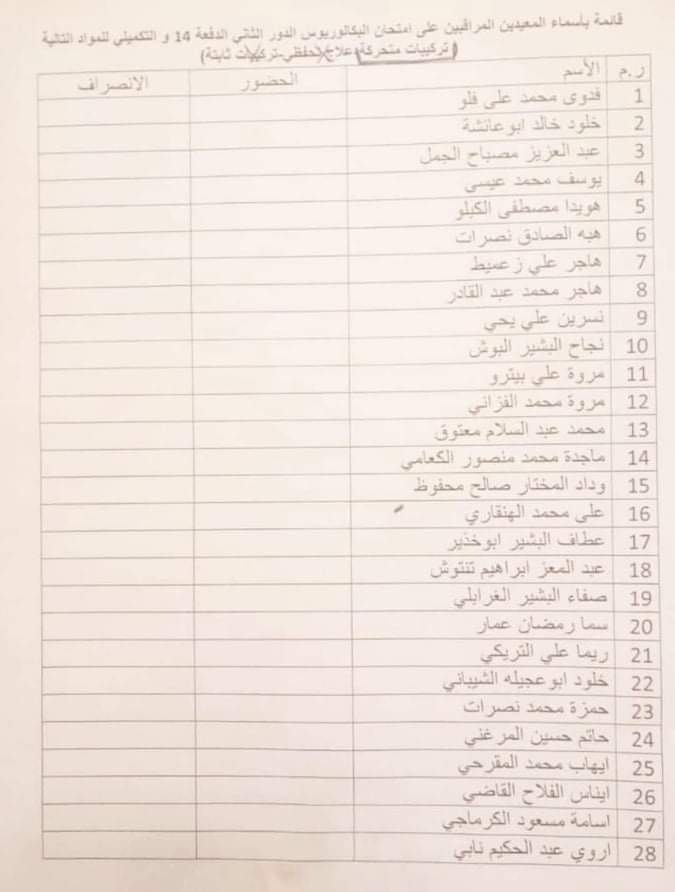 قائمة بأسماء المعيدين المراقبين على امتحان البكالوريوس الدور الثاني الدفعة 14 و التكميلي للمواد التالية
(تركيبات متحركة-علاج حفظي-تركيبات ثابتة)
ر.م الأسم الحضور الانصراف
1 فدوى محمد على فلو
2 خلود خالد ابوعائشة
3 عبد العزيز مصباح الجمل
4 يوسف محمد عيسى
5 هويدا مصطفى الكبلو
6 هبه الصادق نصرات
7 هاجر علي زعميط
8 هاجر محمد عبد القادر
9 نسرين علي يحي
10 نجاح البشير البوش
11 مروة علي بيترو
12 مروة محمد الفزاني
13 محمد عبد السلام معتوق
14 ماجدة محمد منصور الكعامي
15 وداد المختار صالح محفوظ
16 على محمد الهنقاري
17 عطاف البشير ابوخذير
18 عبد المعز ابراهيم تنتوش
19 صفاء البشير الغرابلي
20 سما رمضان عمار
21 ريما علي التريكي
22 خلود ابوعجيله الشيباني
23 حمزة محمد نصرات
24 حاتم حسين المرغني
25 ايهاب محمد المقرحي
26 ايناس الفلاح القاضي
27 اسامة مسعود الكرماجي
28 اروي عبد الحكيم نابي